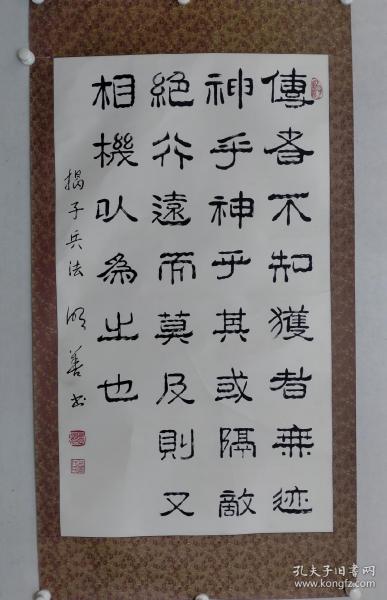 傳者不知獲者無迹
神乎神乎其或隔敵
絕行遠而莫及則又
相機以為之也
揭子兵法 明善書
孔夫子旧书网